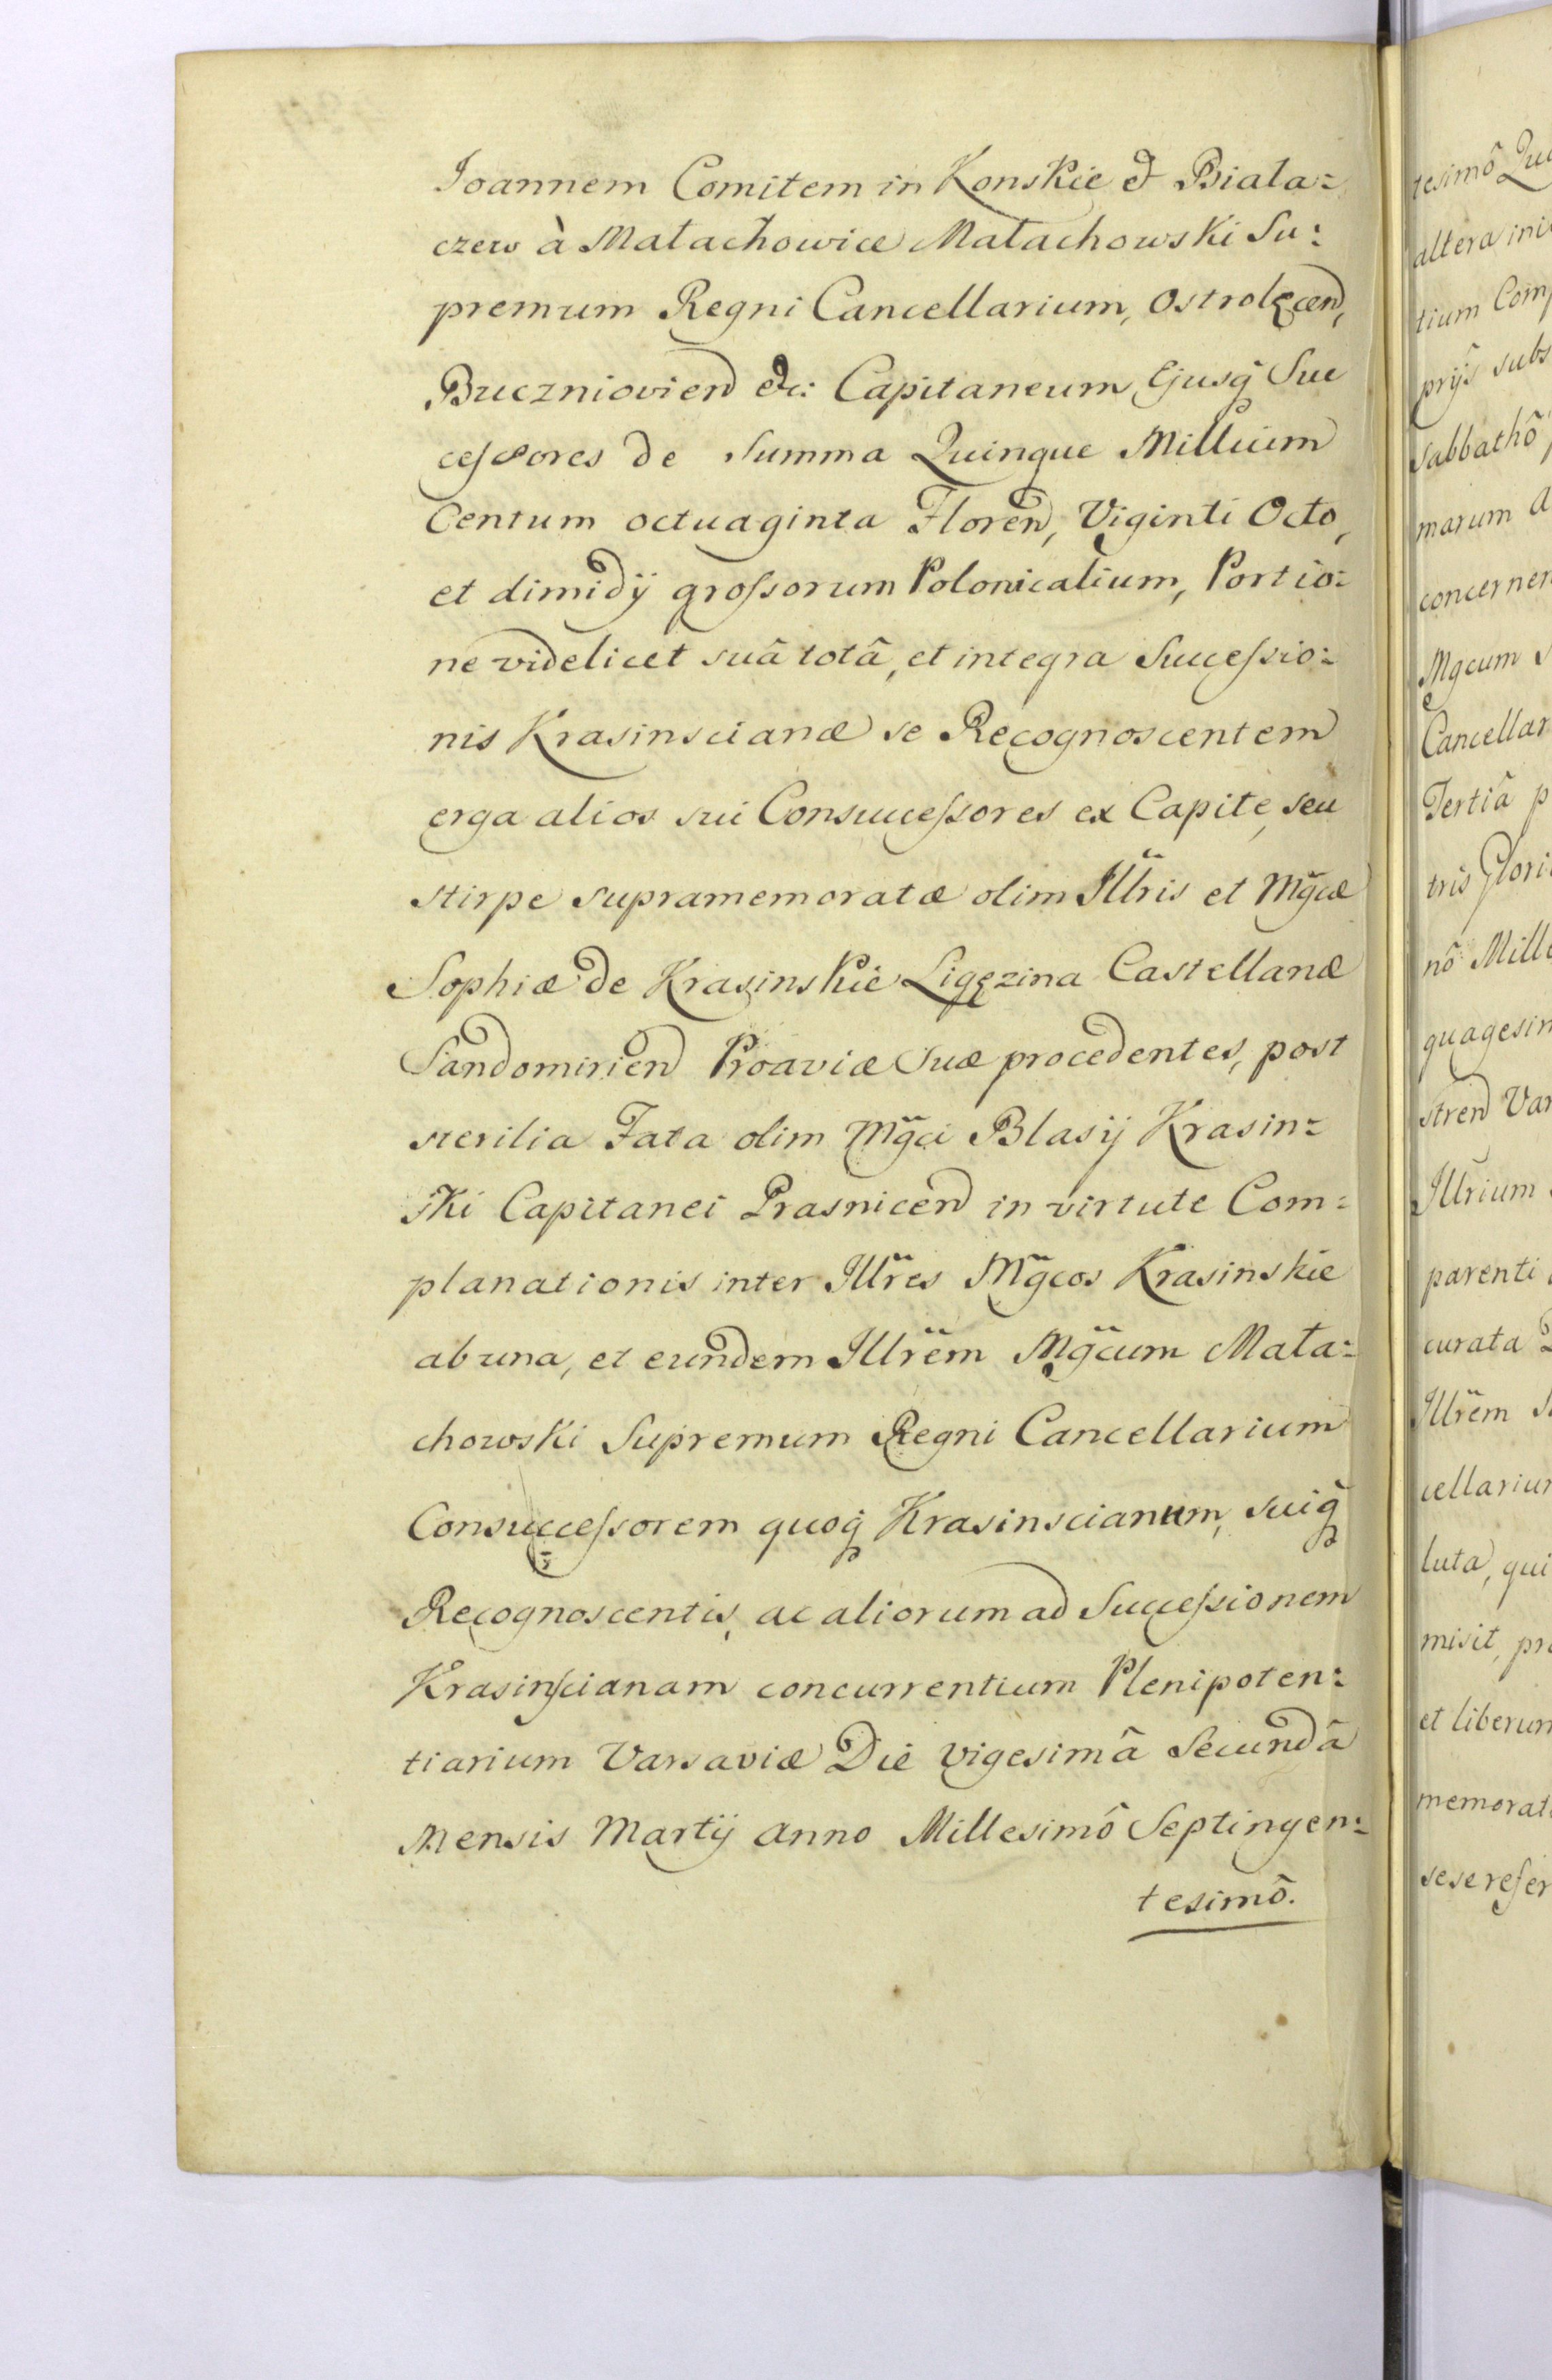 Joannem Comitem in Konskie & Biała=
czew à Małachowice Małachowski Su=
premum Regni Cancellarium, Ostrolęcen,
Buczniovien &c: Capitaneum, Ejusq̃ Suc
ceſsores de Summa Quinque Millium
Centum octuaginta Floren̄, Viginti Octo,
et dimidÿ groſsorum Polonicalium, Portio=
ne videlicet suâ totâ, et integra Succeſsio=
nis Krasinscianæ se Recognoscentem
erga alios sui Consucceſsores ex Capite, seu
stirpe supramemoratæ olim Illr̃is et Mg̃cæ
Sophiæ de Krasinskie Ligęzina Castellanæ
Sandomirien Proaviæ Suæ procedentes, post
sterilia Fata olim Mg̃ci Blasÿ Krasin=
ski Capitanei Prasnicen in virtute Com=
planationis inter Illr̃es Mg̃cos Krasinskie
ab una, et eundem Illr̃em Mg̃cum Mała=
chowski Supremum Regni Cancellarium
Consucceſsorem quoq̃ Krasinscianum, suiq̃
Recognoscentis, ac aliorum ad Succeſsionem
Krasinſcianam concurrentium Plenipoten=
tiarium Varsaviæ Die vigesimâ Secundâ
Mensis Martÿ Anno Millesimô Septingen=
tesimô.
tesimô
altera
tium
prÿs
Sabbathô
marum
Mg̃cum
Tertiâ
tris
nô
stren
Illr̃ium
parenti
curata
Illr̃em
luta, qui
misit,
et